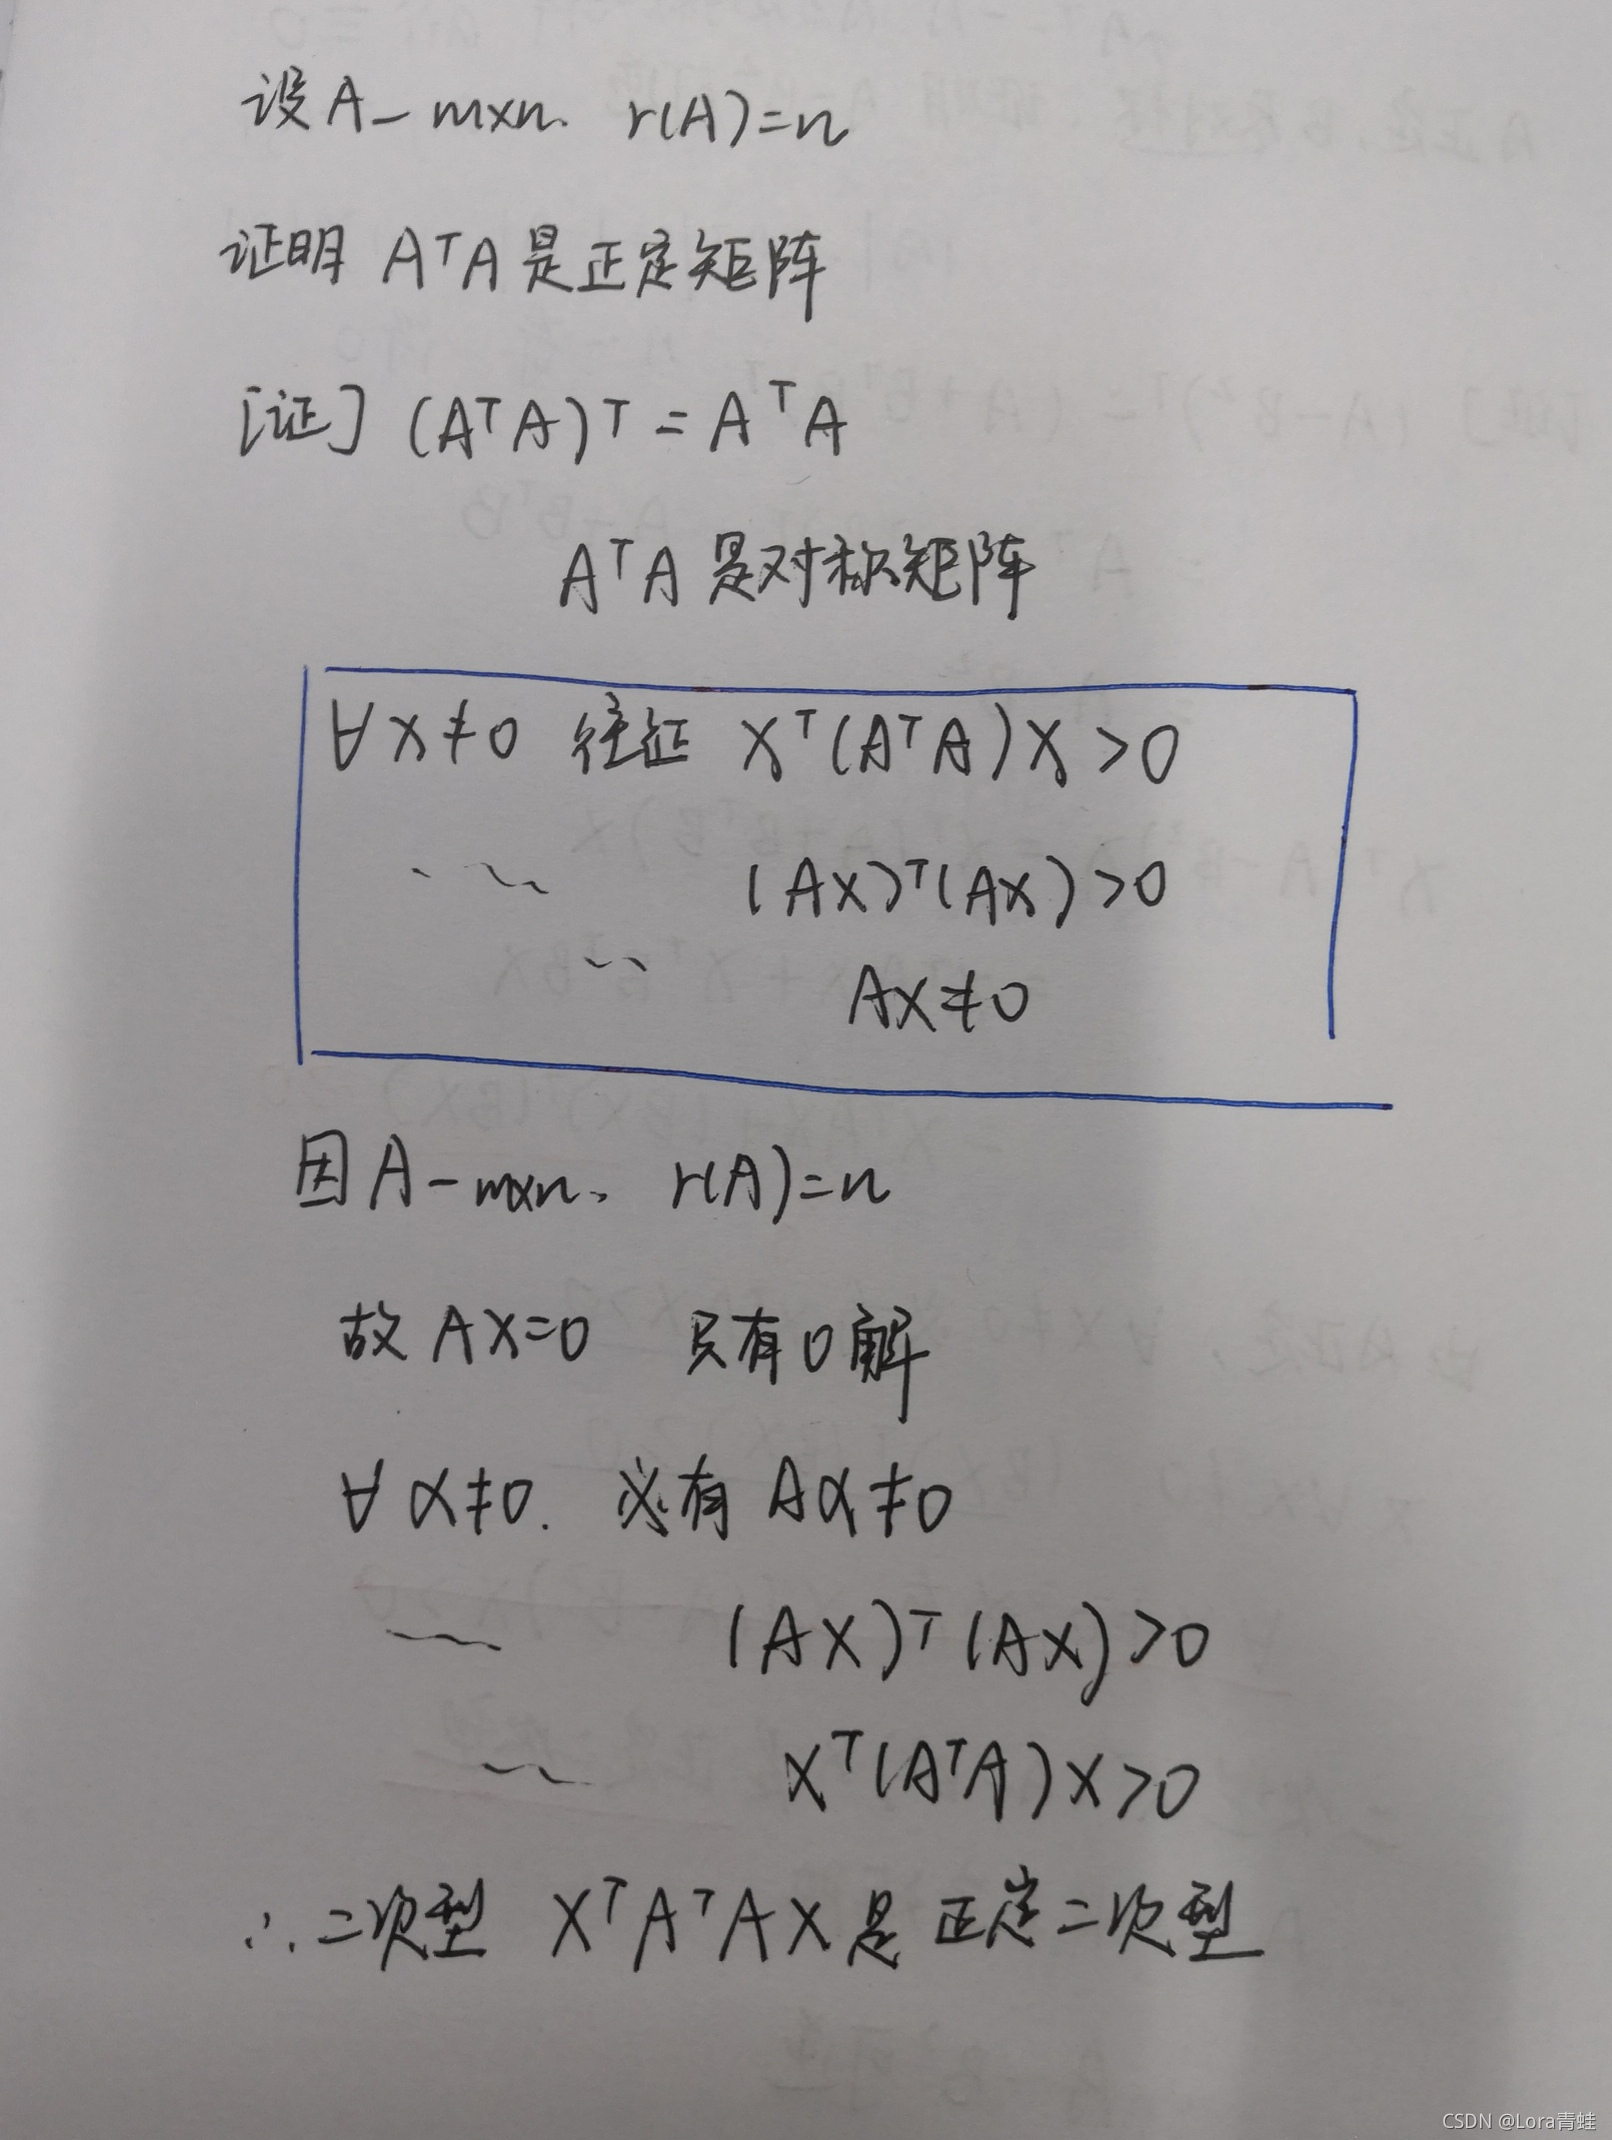 设A-m×n. r(A)=n
证明 AᵀA是正定矩阵
[证] (AᵀA)ᵀ=AᵀA
AᵀA是对称矩阵
∀x≠0 往证 xᵀ(AᵀA)x>0
(Ax)ᵀ(Ax)>0
Ax≠0
因A-m×n、 r(A)=n
故Ax=0 只有0解
∀α≠0. 必有 Aα≠0
(Ax)ᵀ(Ax)>0
xᵀ(AᵀA)x>0
∴二次型 xᵀAᵀAx是正定二次型
CSDN @Lora青蛙